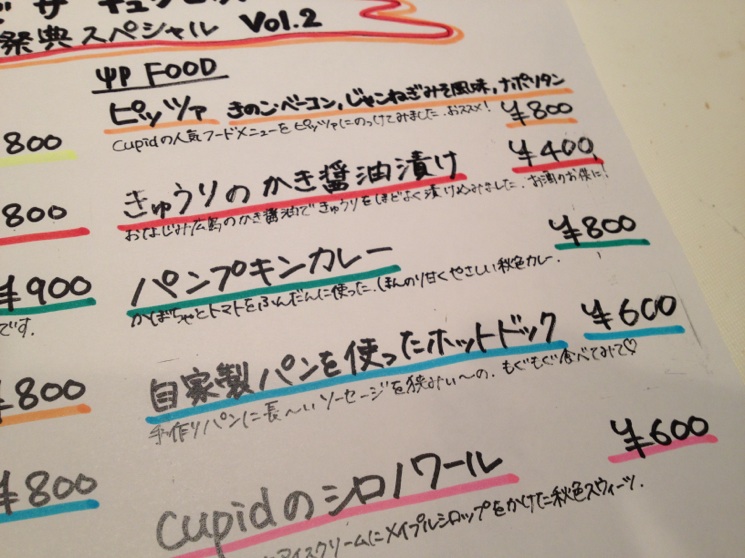 祭典スペシャル Vol.2
FOOD
ピッツァ きのこ・ベーコン, じゃこねぎみそ風味, ナポリタン
¥800
Cupidの人気フードメニューをピッツァにのっけてみました. おススメ!
きゅうりのかき醤油漬け
¥400
おなじみ広島のかき醤油できゅうりをほどよく漬けこみました. お酒のお供に!
パンプキンカレー
¥800
かぼちゃとトマトをふんだんに使った, ほんのり甘くやさしい秋色カレー.
自家製パンを使ったホットドック
¥600
手作りパンに長〜いソーセージを挟みぃ〜の. もぐもぐ食べてみて♡
cupidのシロノワール
¥600
アイスクリームにメイプルシロップをかけた秋色スウィーツ.
800
800
¥900
です.
¥800
¥800